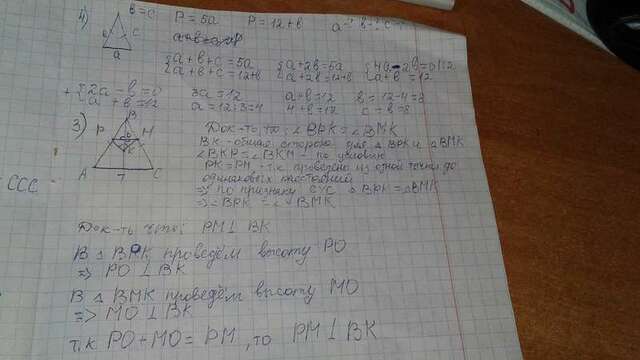 4) b=c P = 5a P = 12+b a-? b-? c-?
b c
a
{a+b+c=5a {a+2b=5a {4a-2b=0 |:2
{a+b+c=12+b {a+2b=12+b {a+b=12
+{2a-b=0 3a=12 a+b=12 b=12-4=8
{a+b=12 a=12:3=4 4+b=12 c=b=8
3) Док-ть, что: ∠BPK=∠BMK
BK - общая сторона для △BPK и △BMK
∠BKP=∠BKM - по условию
PK=PM, т.к проведено из одной точки до
одинаковых расстояний
=> по признаку СУС △BPK=△BMK
=> ∠BPK=∠BMK
B
P M
K
A 7 C
ССС
Док-ть что: PM⊥BK
В △ BPK проведём высоту PO
=> PO⊥BK
В △ BMK проведём высоту MO
=> MO⊥BK
т.к PO+MO=PM, то PM⊥BK